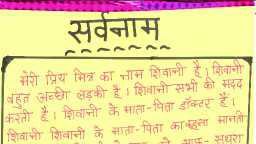 सर्वनाम
मेरी प्रिय मित्र का नाम शिवानी है। शिवानी
बहुत अच्छी लड़की है। शिवानी सभी की मदद
करती है। शिवानी के माता-पिता डॉक्टर हैं।
शिवानी शिवानी के माता-पिता का कहना मानती